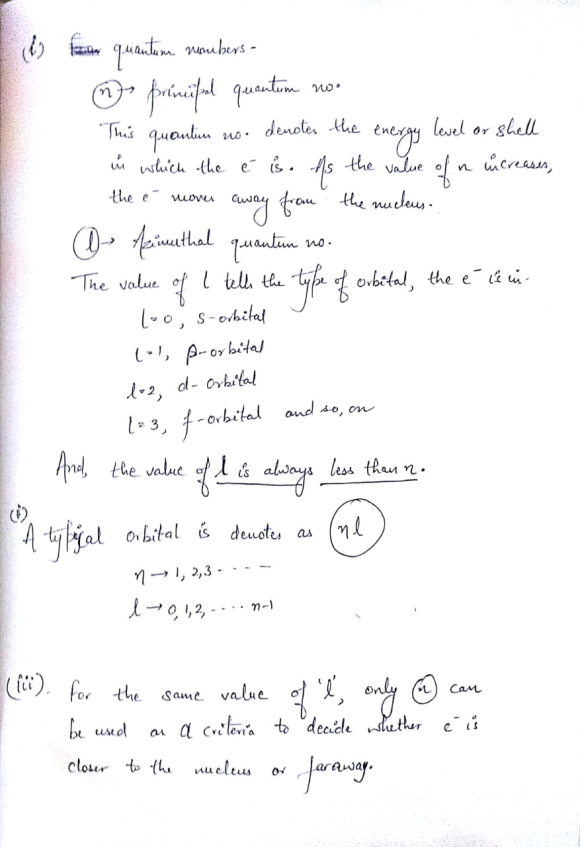 (i) quantum numbers -
(n)→ principal quantum no.
This quantum no. denotes the energy level or shell
in which the e⁻ is. As the value of n increases,
the e⁻ moves away from the nucleus.
(l)→ Azimuthal quantum no.
The value of l tells the type of orbital, the e⁻ is in.
l=0, s-orbital
l=1, p-orbital
l=2, d-orbital
l=3, f-orbital and so, on
And, the value of l is always less than n.
(ii)
A typical orbital is denotes as (nl)
n → 1, 2, 3 - - - -
l → 0, 1, 2, ..... n-1
(iii). For the same value of 'l', only (n) can
be used as a criteria to decide whether e⁻ is
closer to the nucleus or faraway.